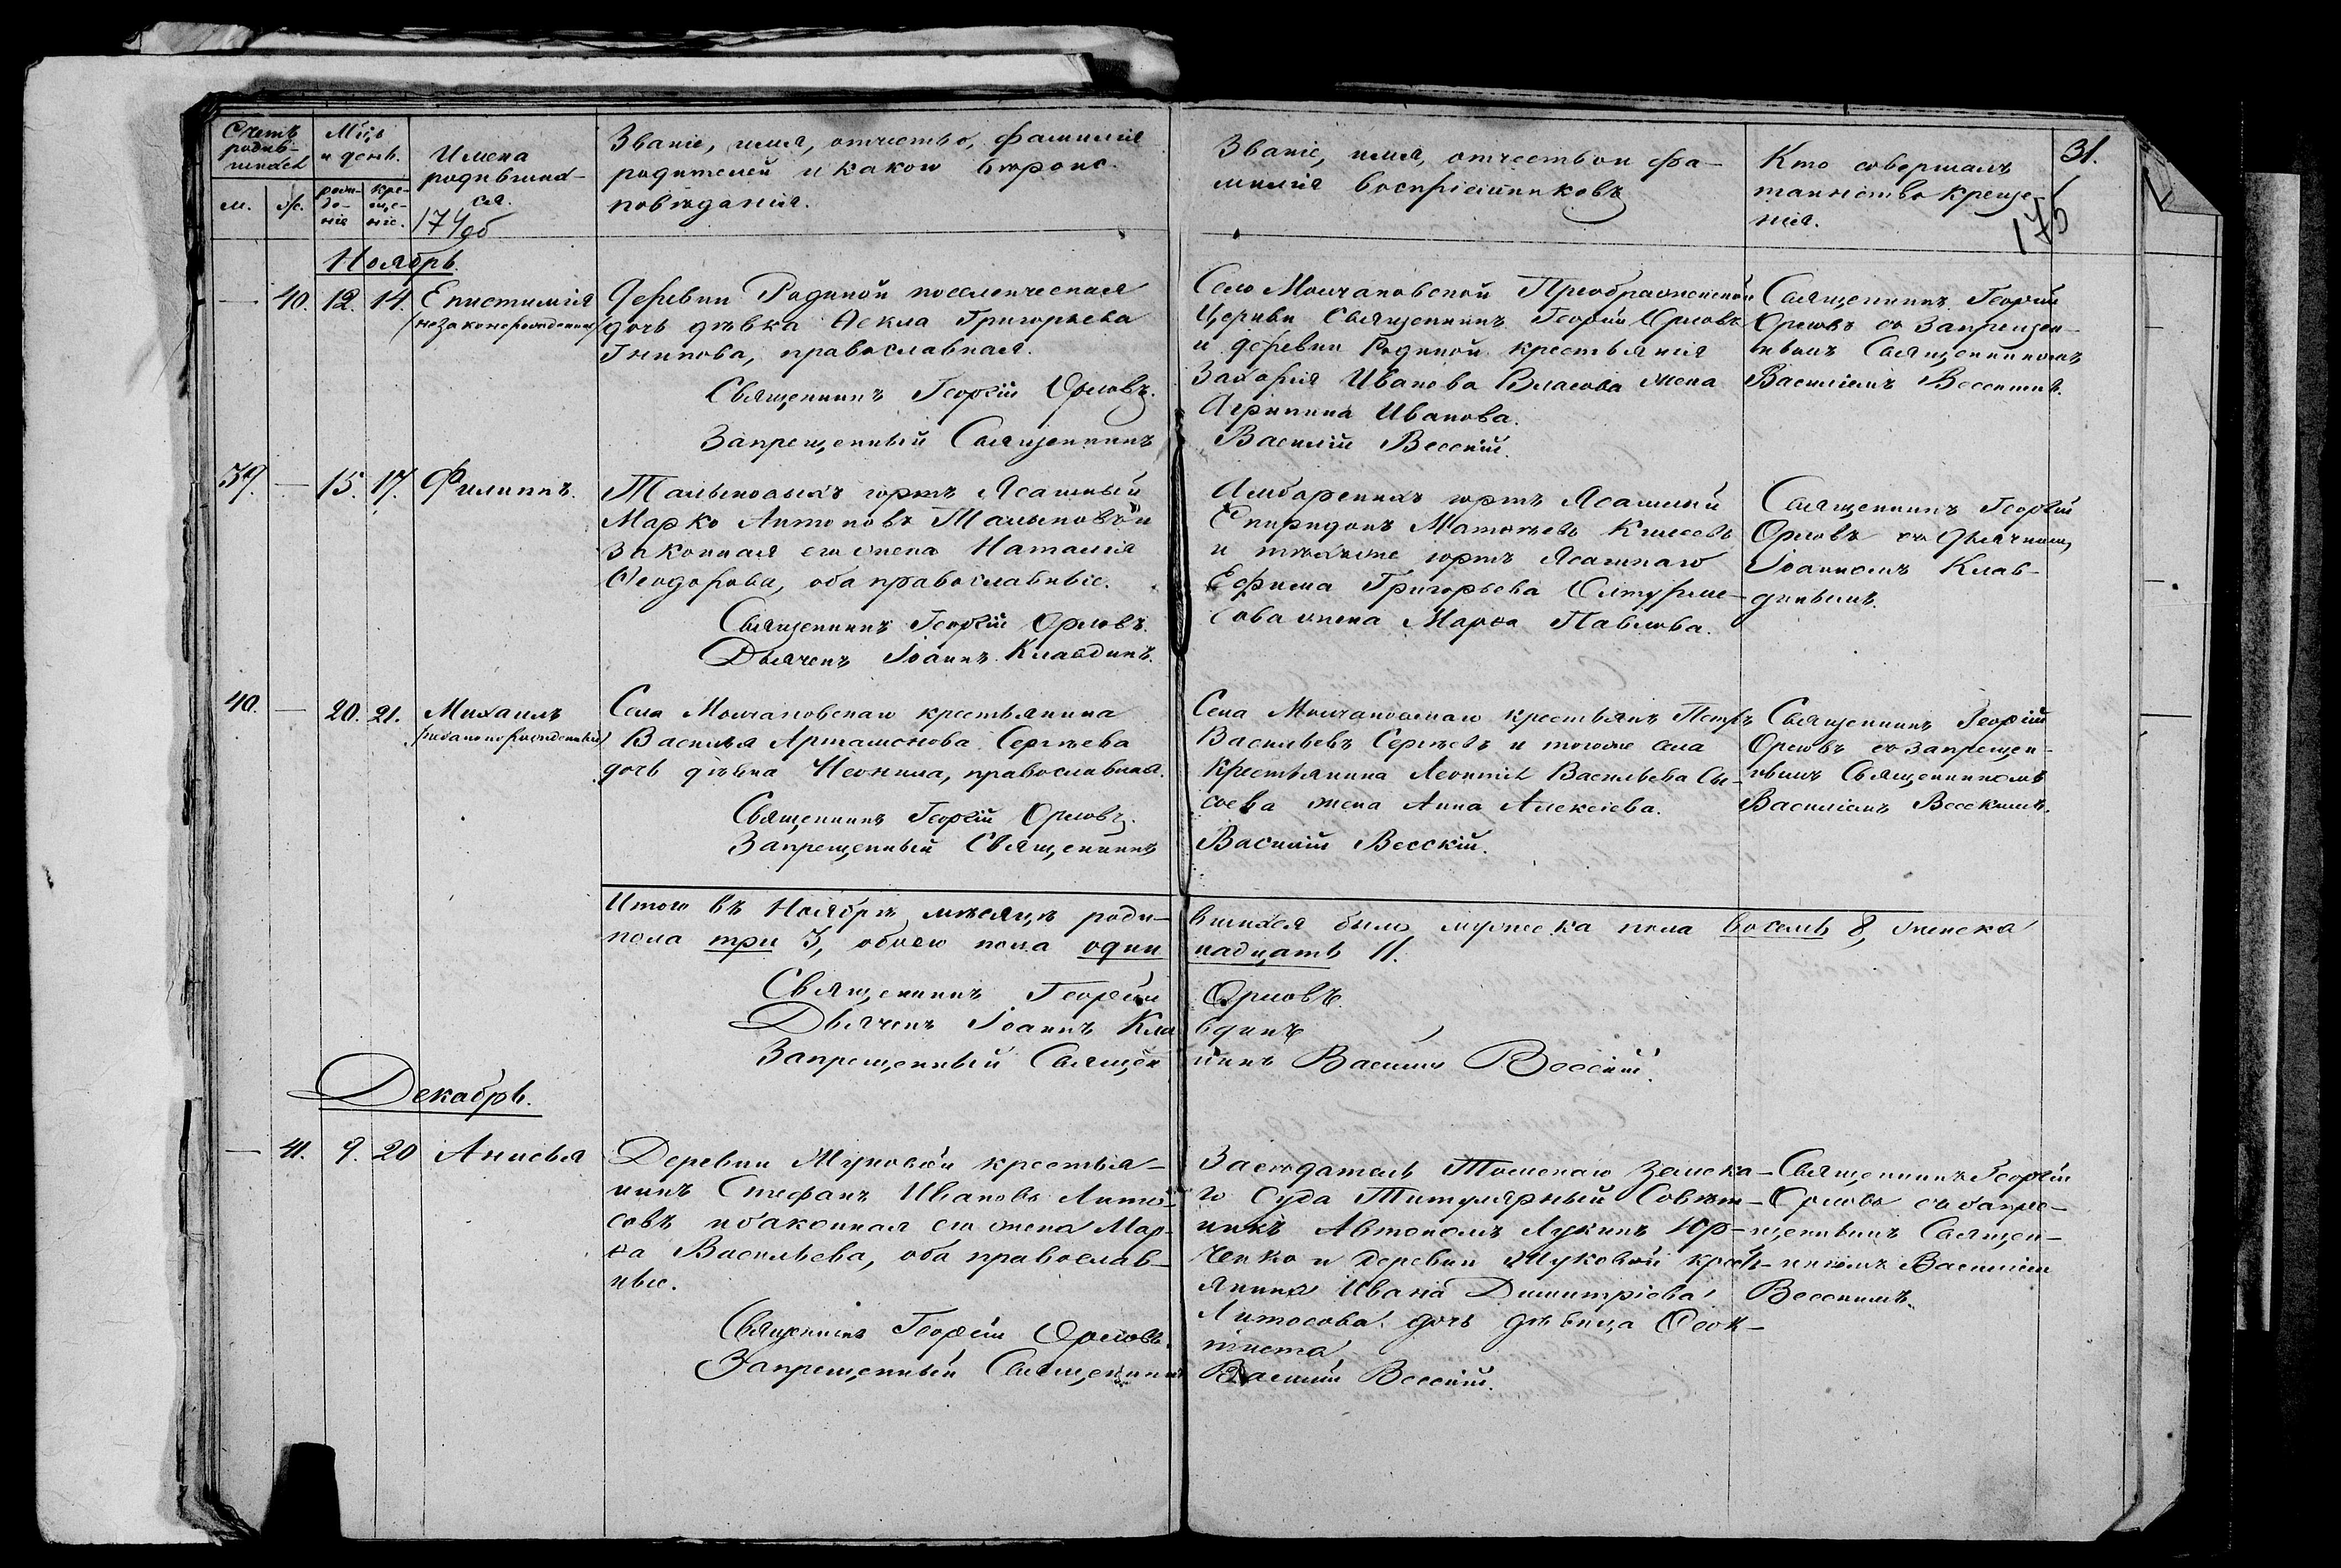 Счетъ родив-шихся
Мѣсц. и день.
Имена родившихся.
Званіе, имя, отчество, фамилія
родителей и какого вѣроис-
повѣданія.
Званіе, имя, отчество и фа-
милія воспріемниковъ
Кто совершалъ
таинство креще-
нія.
31.
м.
ж.
рож-де-нія
кре-ще-нія.
174об
175
Ноябрь.
— 40. 12. 14. Епистимія
/незаконорожденная/
Деревни Родиной поселенческая
дочь дѣвка Ѳекла Григорьева
православная.
Священникъ Георгій Орловъ.
Запрещенный Священникъ
Село Молчановской Преображенской
Церкви Священникъ Георгій Орловъ
и деревни Родиной крестьянина
Захарія Иванова Власова жена
Агрипина Иванова.
Василій Весскій.
Священникъ Георгій
Орловъ съ запрещен-
нымъ Священникомъ
Василіемъ Весскимъ.
39. — 15. 17. Филиппъ.
Тальновыхъ юртъ Ясашный
Марко Антоновъ Тальновъ и
законная его жена Наталія
Ѳеодорова, оба православные.
Священникъ Георгій Орловъ.
Дьячекъ Іоаннъ Клавдинъ.
Амбарскихъ юртъ Ясашный
Спиридонъ Матѳѣевъ
и тѣхъже юртъ Ясашнаго
Ефима Григорьева
жена Марѳа Павлова.
Священникъ Георгій
Орловъ съ Дьячкомъ
Іоанномъ Клав-
динымъ.
40. — 20. 21. Михаилъ
/незаконорожденный/
Села Молчановскаго крестьянина
Василья Артамонова Сергѣева
дочь дѣвка Неонила, православная.
Священникъ Георгій Орловъ.
Запрещенный Священникъ
Села Молчановскаго крестьянъ Петръ
Васильевъ Сергѣевъ и тогоже села
крестьянина Леонтія Васильева Сы-
соева жена Анна Алексѣева.
Василій Весскій.
Священникъ Георгій
Орловъ съ запрещен-
нымъ Священникомъ
Василіемъ Весскимъ.
Итого въ Ноябрѣ мѣсяцѣ роди-
вшихся было мужеска пола восемь 8, женска
пола три 3, обоего пола один
надцать 11.
Священникъ Георгій Орловъ.
Дьячекъ Іоаннъ Клавдинъ
Запрещенный Священникъ Василій Весскій.
Декабрь.
— 41. 9. 20 Анисья
Деревни Жуковой крестья-
нинъ Стефанъ Ивановъ Лито-
совъ и законная его жена Мар-
ѳа Васильева, оба православ-
ные.
Священникъ Георгій Орловъ.
Запрещенный Священникъ
Засѣдатель Томскаго Земска-
го Суда Титулярный Совѣт-
никъ Автономъ Лукинъ Юр-
ченко и деревни Жуковой крест-
янина Ивана Димитріева
Литосова дочь дѣвица Ѳеок-
тиста
Василій Весскій.
Священникъ Георгій
Орловъ съ запре-
щеннымъ Священ-
никомъ Василіемъ
Весскимъ.